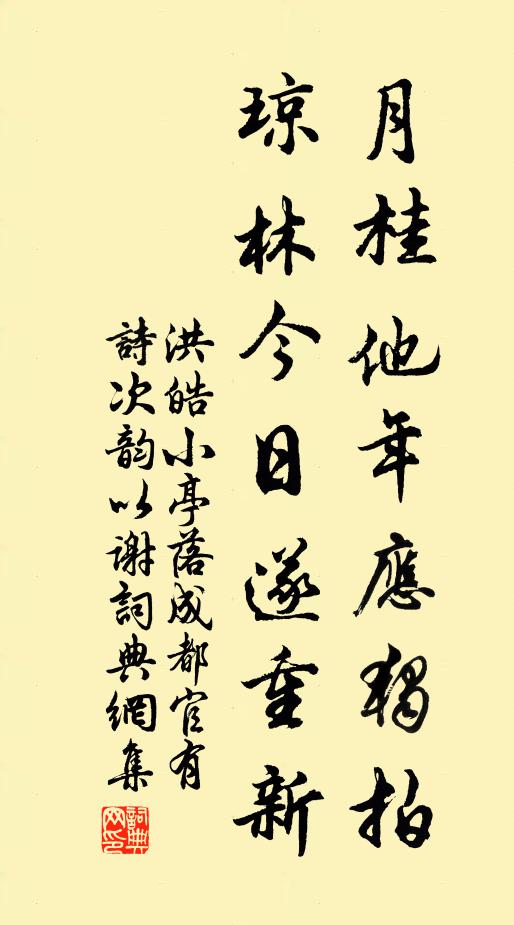 月桂他年應獨拍
琼林今日遂重新
洪皓小亭落成都官有
詩次韵以謝詞典網集
詞典網印